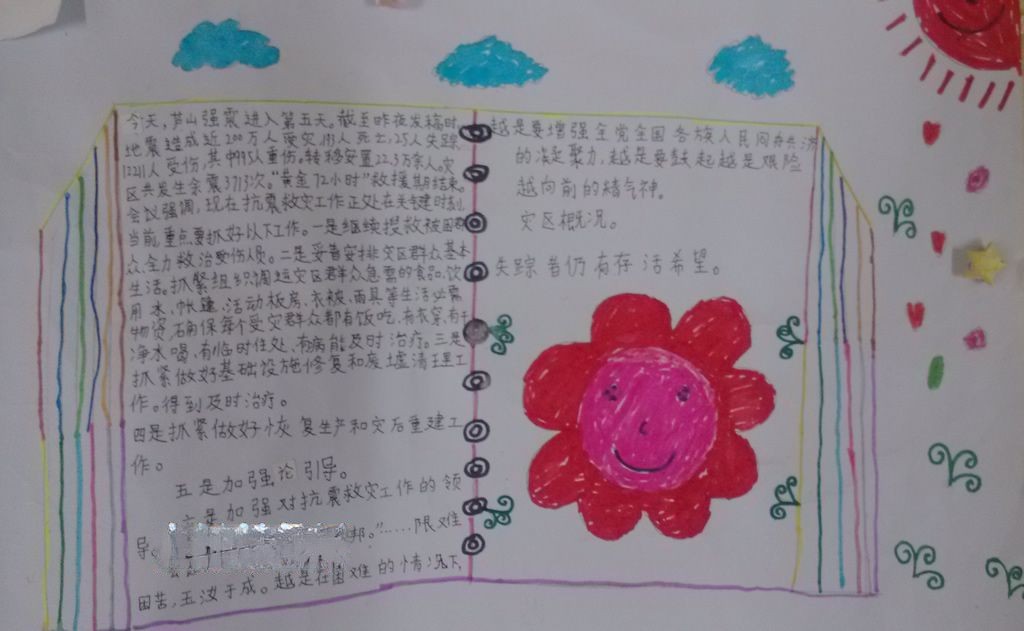 今天,芦山强震进入第五天。截至昨夜发稿时,
地震造成近200万人受灾,193人死亡,25人失踪,
12211人受伤,其中995人重伤。转移安置22.3万余人。灾
区共发生余震3713次。“黄金72小时”救援期结束。
会议强调,现在抗震救灾工作正处在关键时刻,
当前重点要抓好以下工作。一是继续搜救被困群
众,全力救治受伤人员。二是妥善安排灾区群众基本
生活。抓紧组织调运灾区群众急需的食品、饮
用水、帐篷、活动板房、衣被、雨具等生活必需
物资,确保每个受灾群众都有饭吃,有衣穿,有干
净水喝,有临时住处、有病能及时治疗。三是
抓紧做好基础设施修复和废墟清理工
作。得到及时治疗。
四是抓紧做好恢复生产和灾后重建工
作。
五是加强论引导。
六是加强对抗震救灾工作的领
导。
邦。”……限难
困苦,玉汝于成。越是在困难的情况下,
越是要增强全党全国各族人民同舟共济
的凝聚力,越是要鼓起越是艰险
越向前的精气神。
灾区概况。
失踪者仍有存活希望。